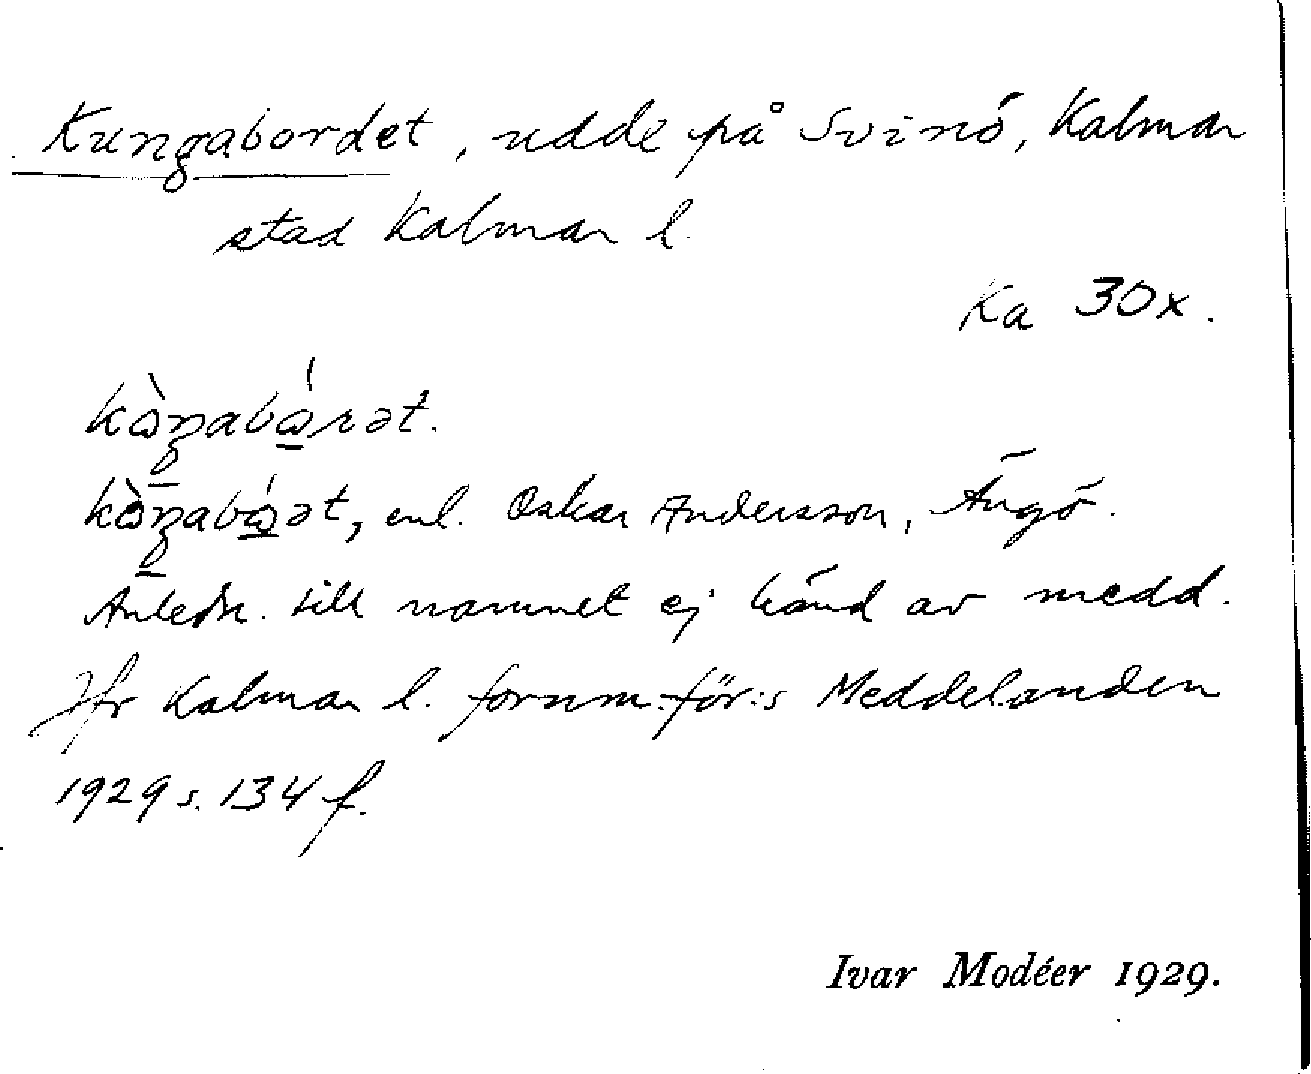 Kungabordet, udde på Svinö, Kalmar
stad Kalmar l.
Ka 30x.
kɷ̀ŋabɷ́rət.
kɷ̀ŋabɷ́ət, enl. Oskar Andersson, Ängö.
Anledn. till namnet ej känd av medd.
Jfr Kalmar l. fornm.för:s Meddelanden
1929 s. 134 f.
Ivar Modéer 1929.